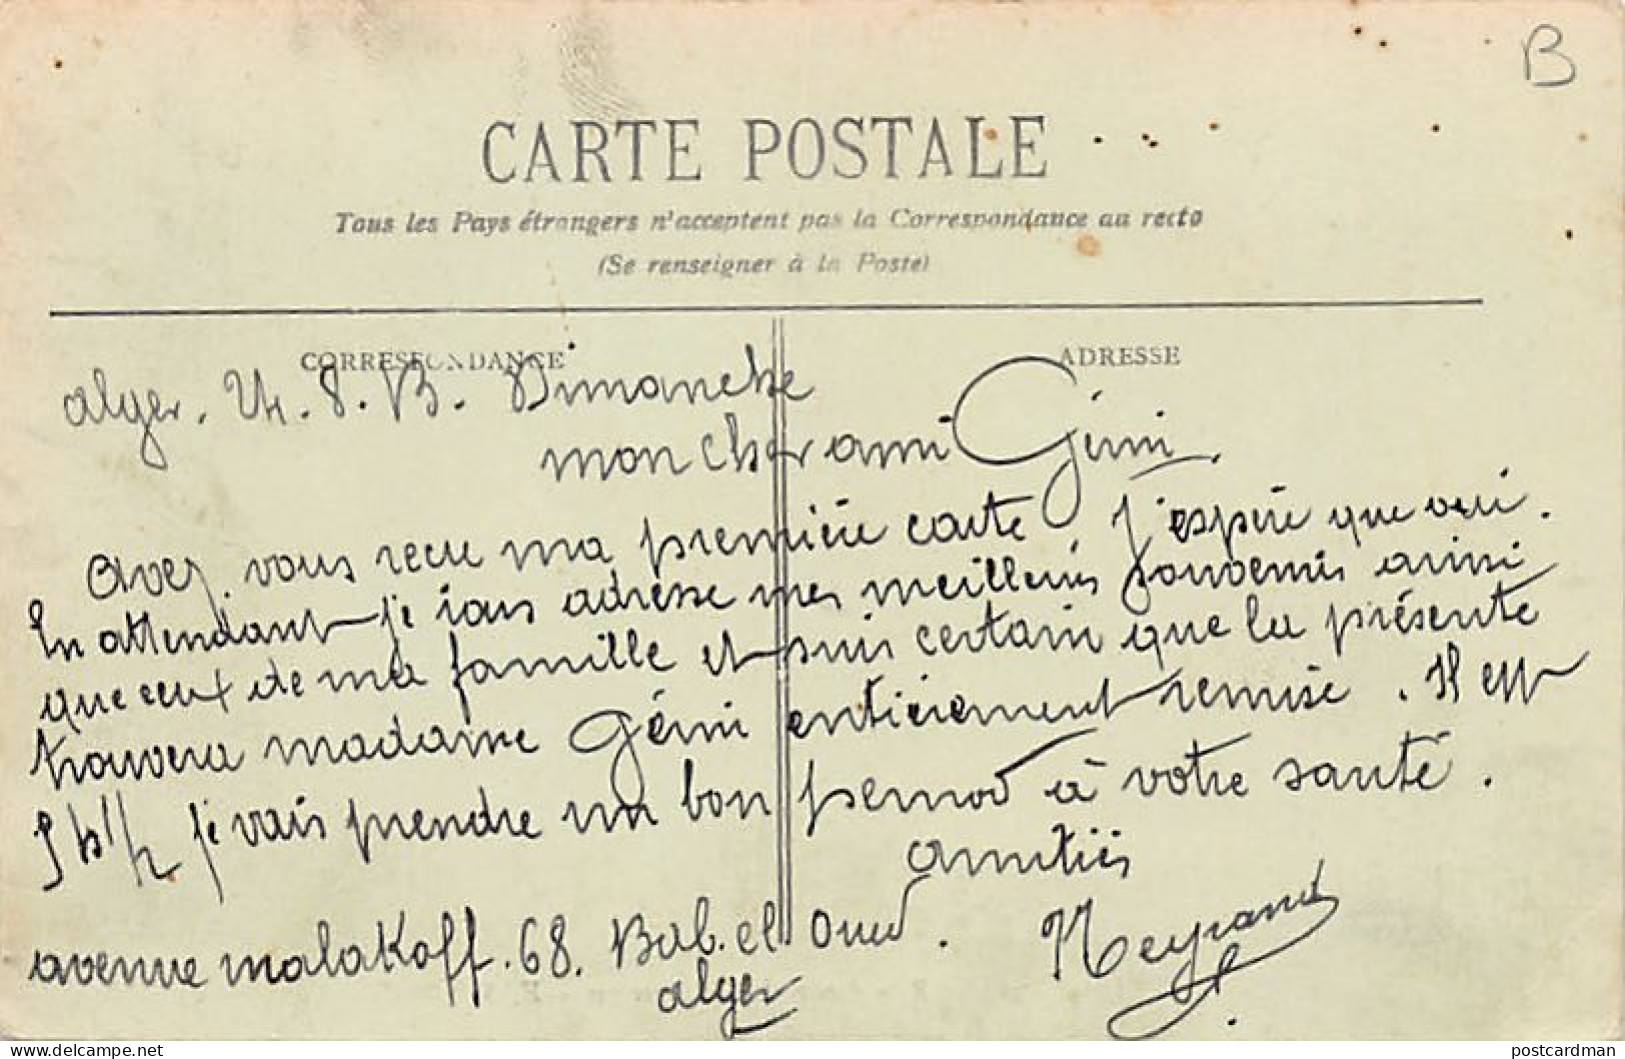 B
CARTE POSTALE
Tous les Pays étrangers n'acceptent pas la Correspondance au recto
(Se renseigner à la Poste)
CORRESPONDANCE
ADRESSE
alger. 8. B. Dimanche
mon cher ami Gémi.
avez vous recu ma première carte j'espère que oui.
En attendant je vous adresse mes meilleurs souvenirs ainsi
que ceux de ma famille et suis certain que la présente
trouvera madame Gémi entièrement remise. Il est
5 h 1/2 je vais prendre un bon pernod à votre santé.
amitiés
avenue malakoff. 68. Bab. el Oued.
alger
postcardman.net/c/de
postcardman